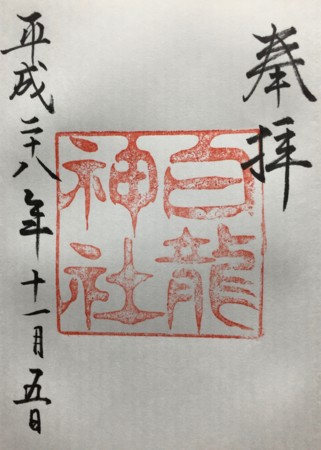 奉拝
白龍
神社
平成二十八年十一月五日